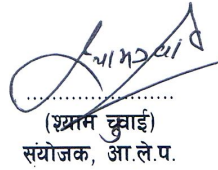 ....................
(श्याम चुवाई)
संयोजक, आ.ले.प.